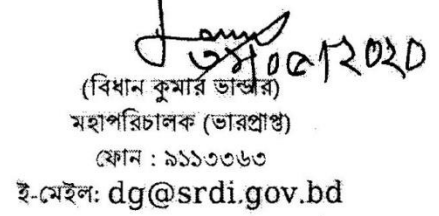 (বিধান কুমার ভান্ডার)
মহাপরিচালক (ভারপ্রাপ্ত)
ফোন : ৯১১৩৩৬৩
ই-মেইল: dg@srdi.gov.bd